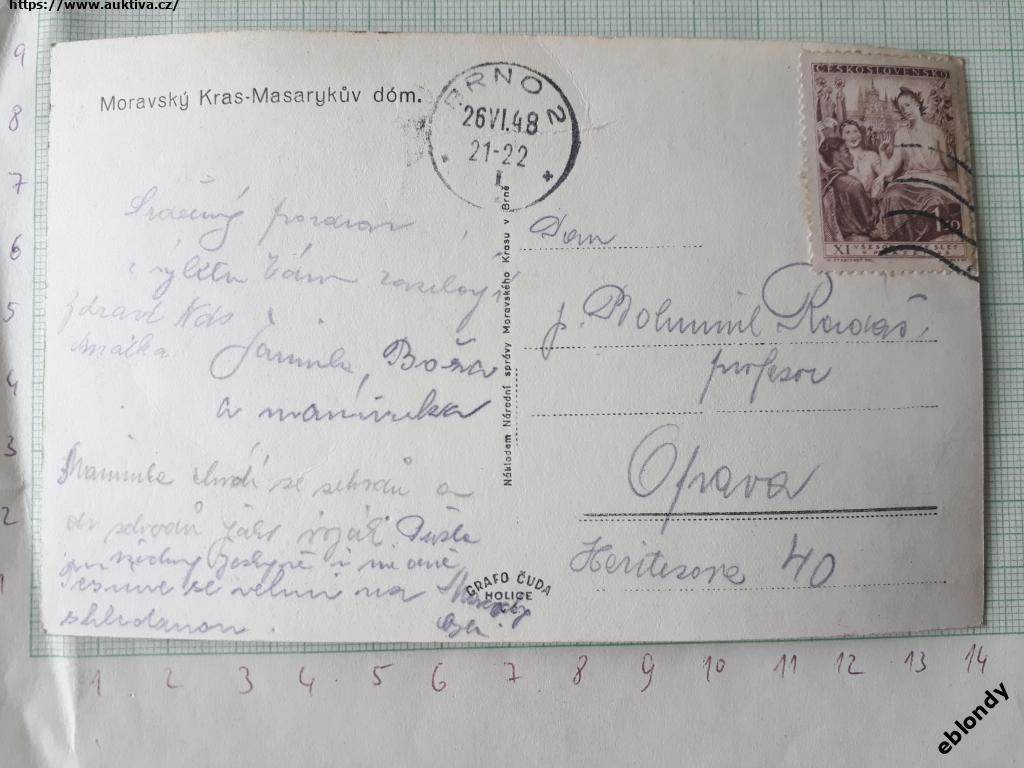 https://www.auktiva.cz/
Moravský Kras-Masarykův dóm.
BRNO 2
26VI.48
21-22
1
ČESKOSLOVENSKO
XI VŠESOKOLSKÝ SLET
Srdečný pozdrav
z výletu Vám zasílají
Zdraví Vás
Jarmila, Boža
a maminka
Maminka chodí se schodů a
do schodů jako voják. Prošla
všechny jeskyně i
Těšíme se velmi na
shledanou.
Nákladem Národní správy Moravského Krasu v Brně
GRAFO ČUDA
HOLICE
Pan
p. Bohumil Radaš,
profesor
Opava
40
9
8
7
6
5
4
3
2
1
1 2 3 4 5 6 7 8 9 10 11 12 13 14
eblondy